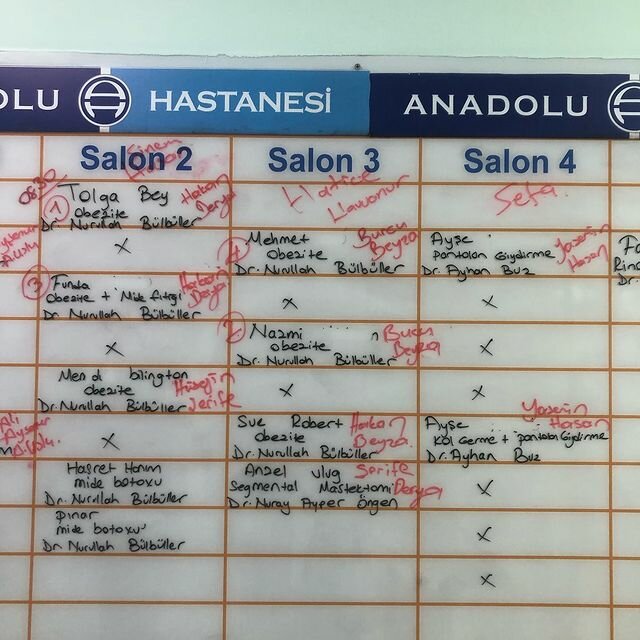 OLU HASTANESİ ANADOLU
Salon 2
Salon 3
Salon 4
08:30
Sinem
Hatice
Sefa
1
Tolga Bey
obezite
Dr. Nurullah Bülbüller
Hakan
Derya
X
2
Mehmet
obezite
Dr. Nurullah Bülbüller
Burcu
Beyza
Ayşe
pantolon Giydirme
Dr. Ayhan Buz
Yasemin
Hasan
Dr.
3
Funda
obezite + Mide fıtığı
Dr. Nurullah Bülbüller
Derya
X
X
X
Nazmi
obezite
Dr. Nurullah Bülbüller
Burcu
Beyza
X
obezite
Dr. Nurullah Bülbüller
Hüseyin
Şerife
X
X
Ali
X
Sue Robert
obezite
Dr. Nurullah Bülbüller
Hakan
Beyza
Ayşe
Kol Germe + pantolon Giydirme
Dr. Ayhan Buz
Yasemin
Hasan
Hasret Hanım
mide botoxu
Dr. Nurullah Bülbüller
Ansel ulug
Segmental Mastektomi
Dr. Nuray Ayper Öngen
Şerife
Derya
X
pınar
mide botoxu
Dr. Nurullah Bülbüller
X
X